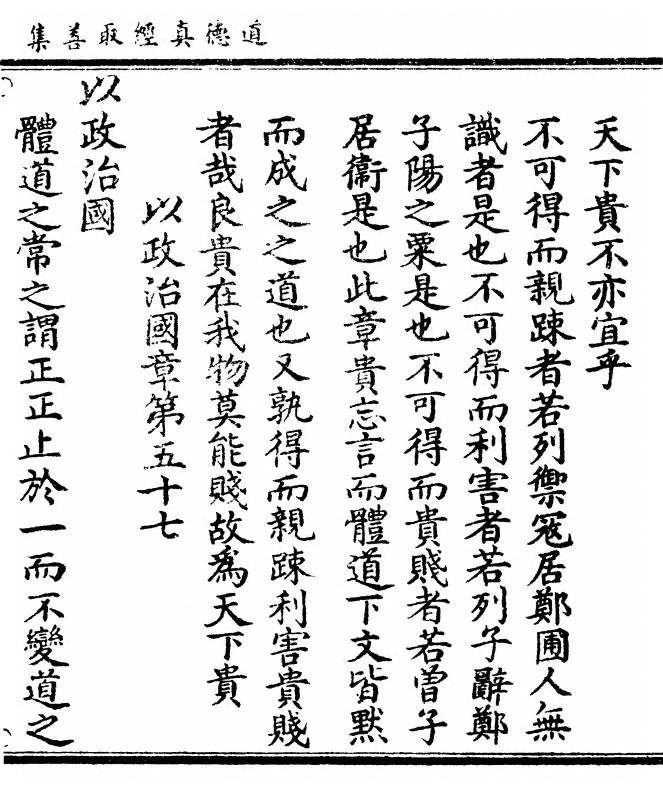 道德真經取善集
天下貴不亦宜乎
不可得而親踈者若列禦冦居鄭圃人無
識者是也不可得而利害者若列子辭鄭
子陽之粟是也不可得而貴賤者若曾子
居衞是也此章貴忘言而體道下文皆黙
而成之之道也又孰得而親踈利害貴賤
者哉良貴在我物莫能賤故爲天下貴
以政治國章第五十七
以政治國
體道之常之謂正正止於一而不變道之